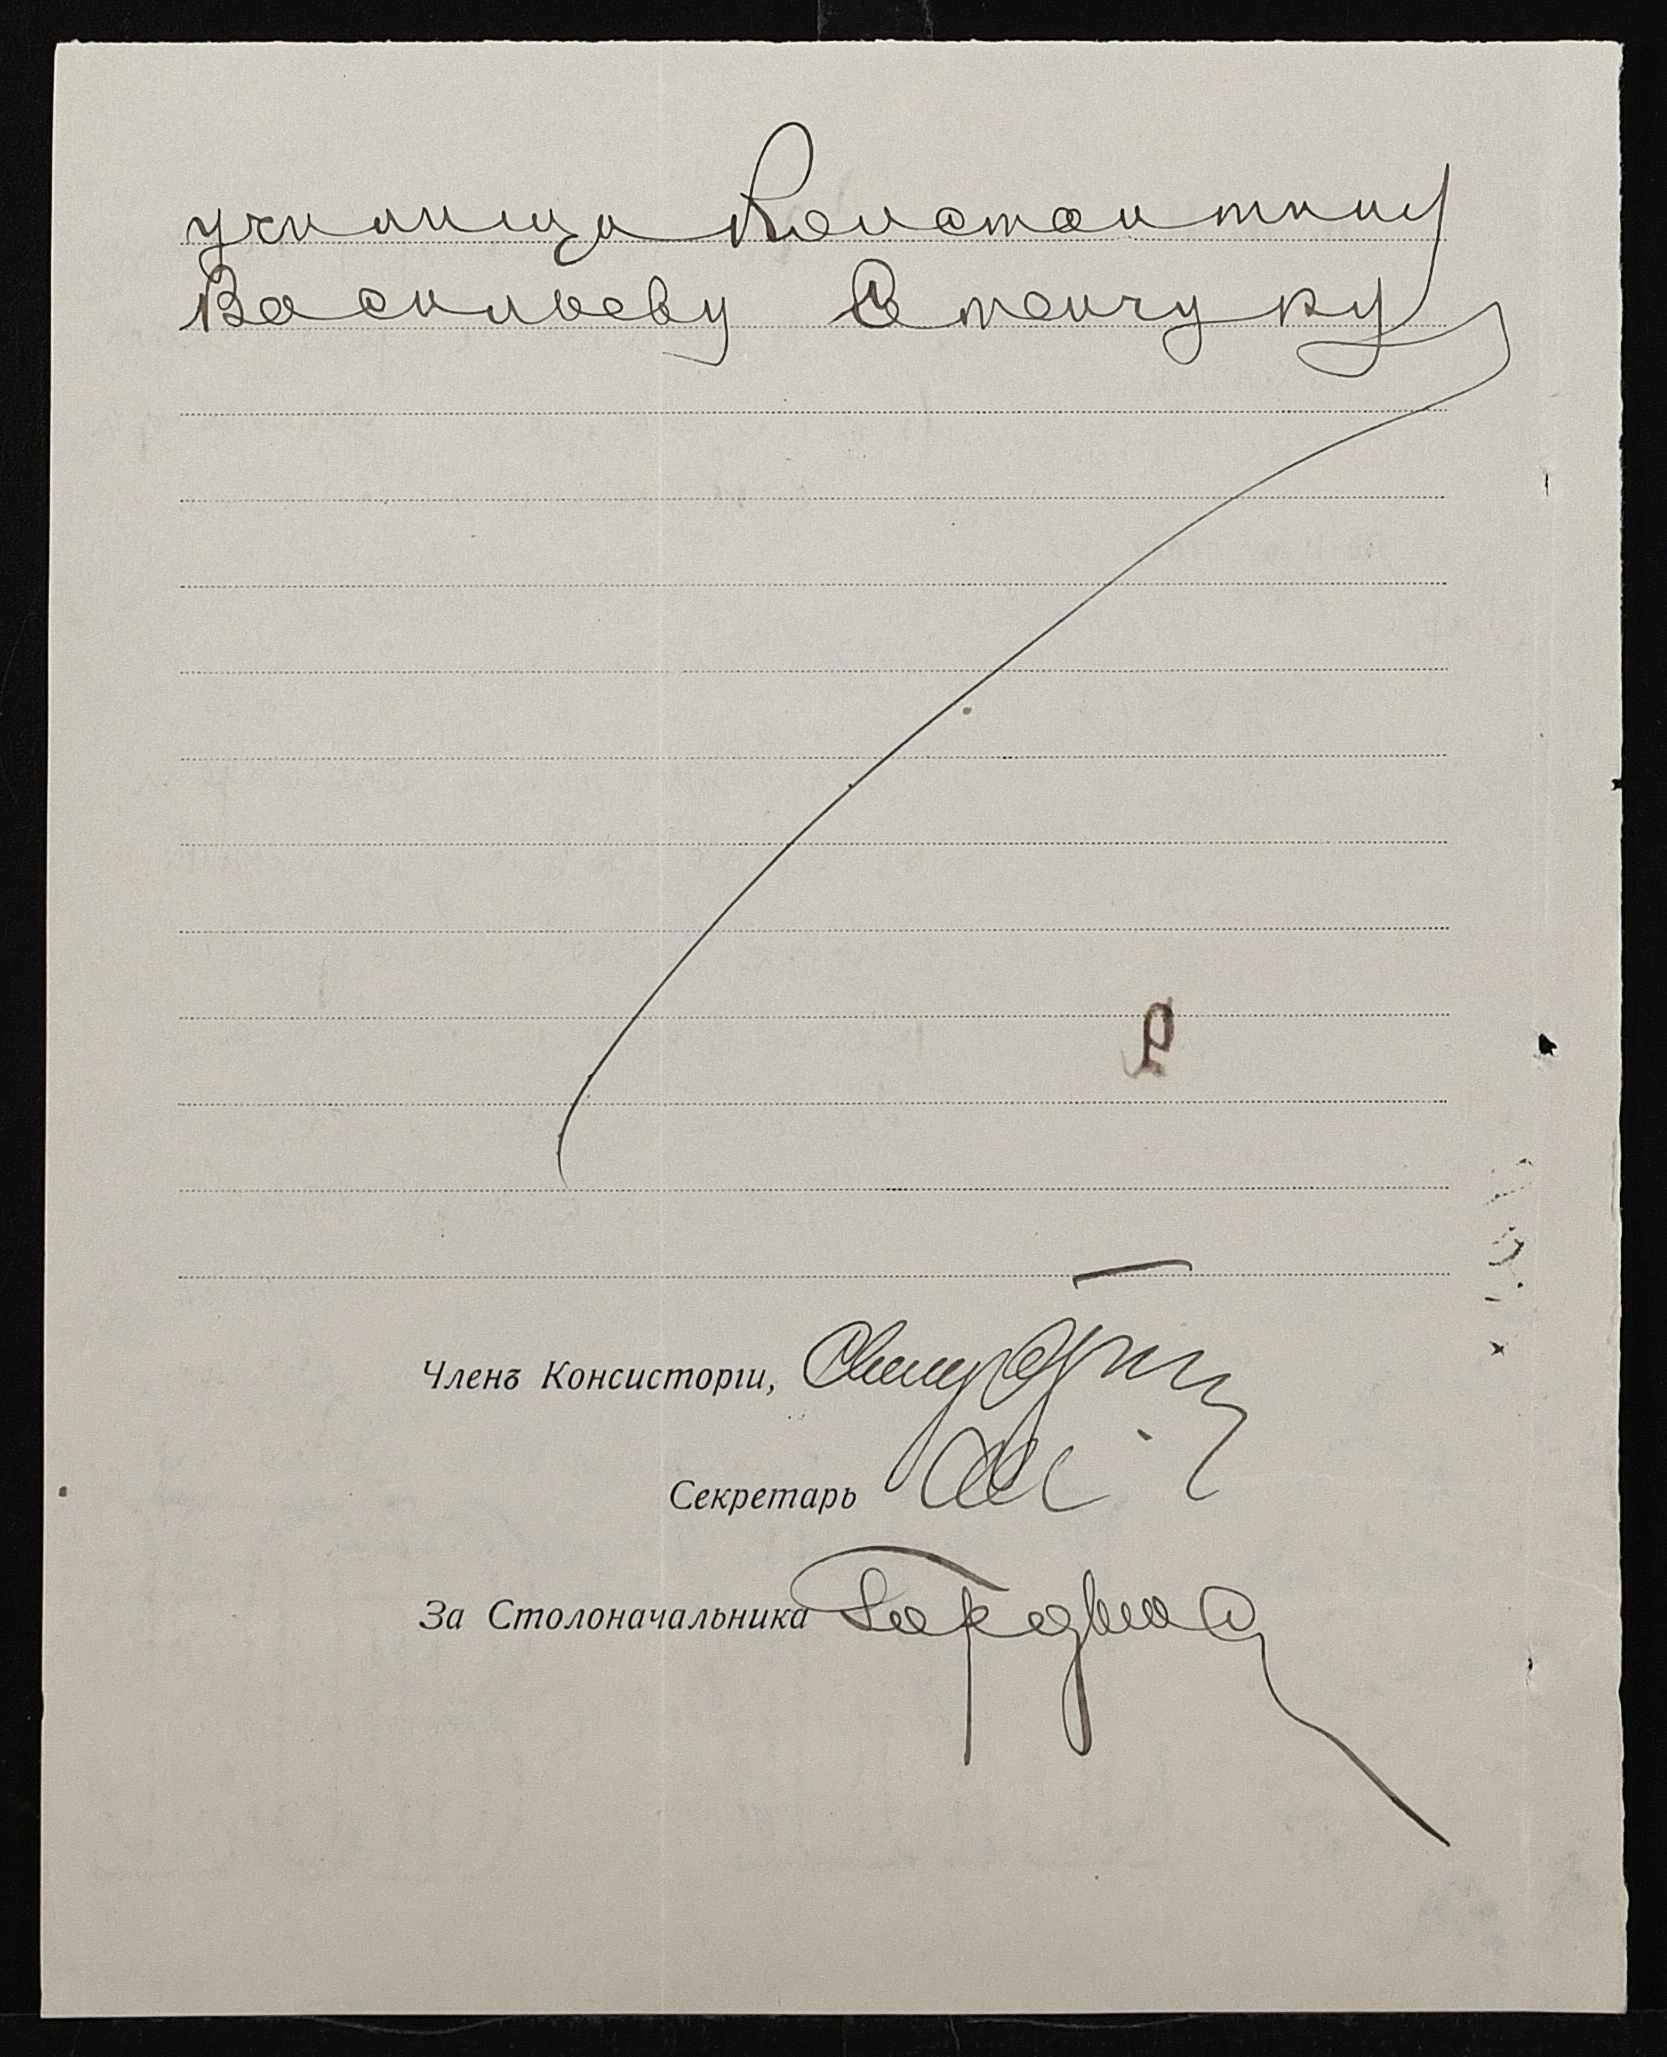 училища Константину
Васильеву Стенчуку
Членъ Консисторіи,
Секретарь
За Столоначальника